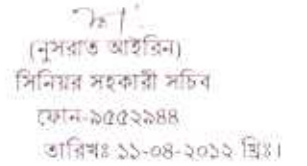 (নুসরাত আইরিন)
সিনিয়র সহকারী সচিব
ফোন-৯৫৫২৯৪৪
তারিখঃ ১১-০৪-২০১২ খ্রিঃ।